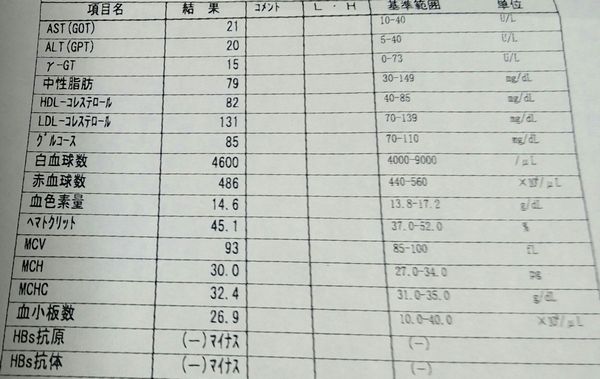 項目名 結果 コメント L・H 基準範囲 単位
AST(GOT) 21 10-40 U/L
ALT(GPT) 20 5-40 U/L
γ-GT 15 0-73 U/L
中性脂肪 79 30-149 mg/dL
HDL-コレステロール 82 40-85 mg/dL
LDL-コレステロール 131 70-139 mg/dL
グルコース 85 70-110 mg/dL
白血球数 4600 4000-9000 /μL
赤血球数 486 440-560 ×10⁴/μL
血色素量 14.6 13.8-17.2 g/dL
ヘマトクリット 45.1 37.0-52.0 %
MCV 93 85-100 fL
MCH 30.0 27.0-34.0 pg
MCHC 32.4 31.0-35.0 g/dL
血小板数 26.9 10.0-40.0 ×10⁴/μL
HBs抗原 (-)マイナス (-)
HBs抗体 (-)マイナス (-)